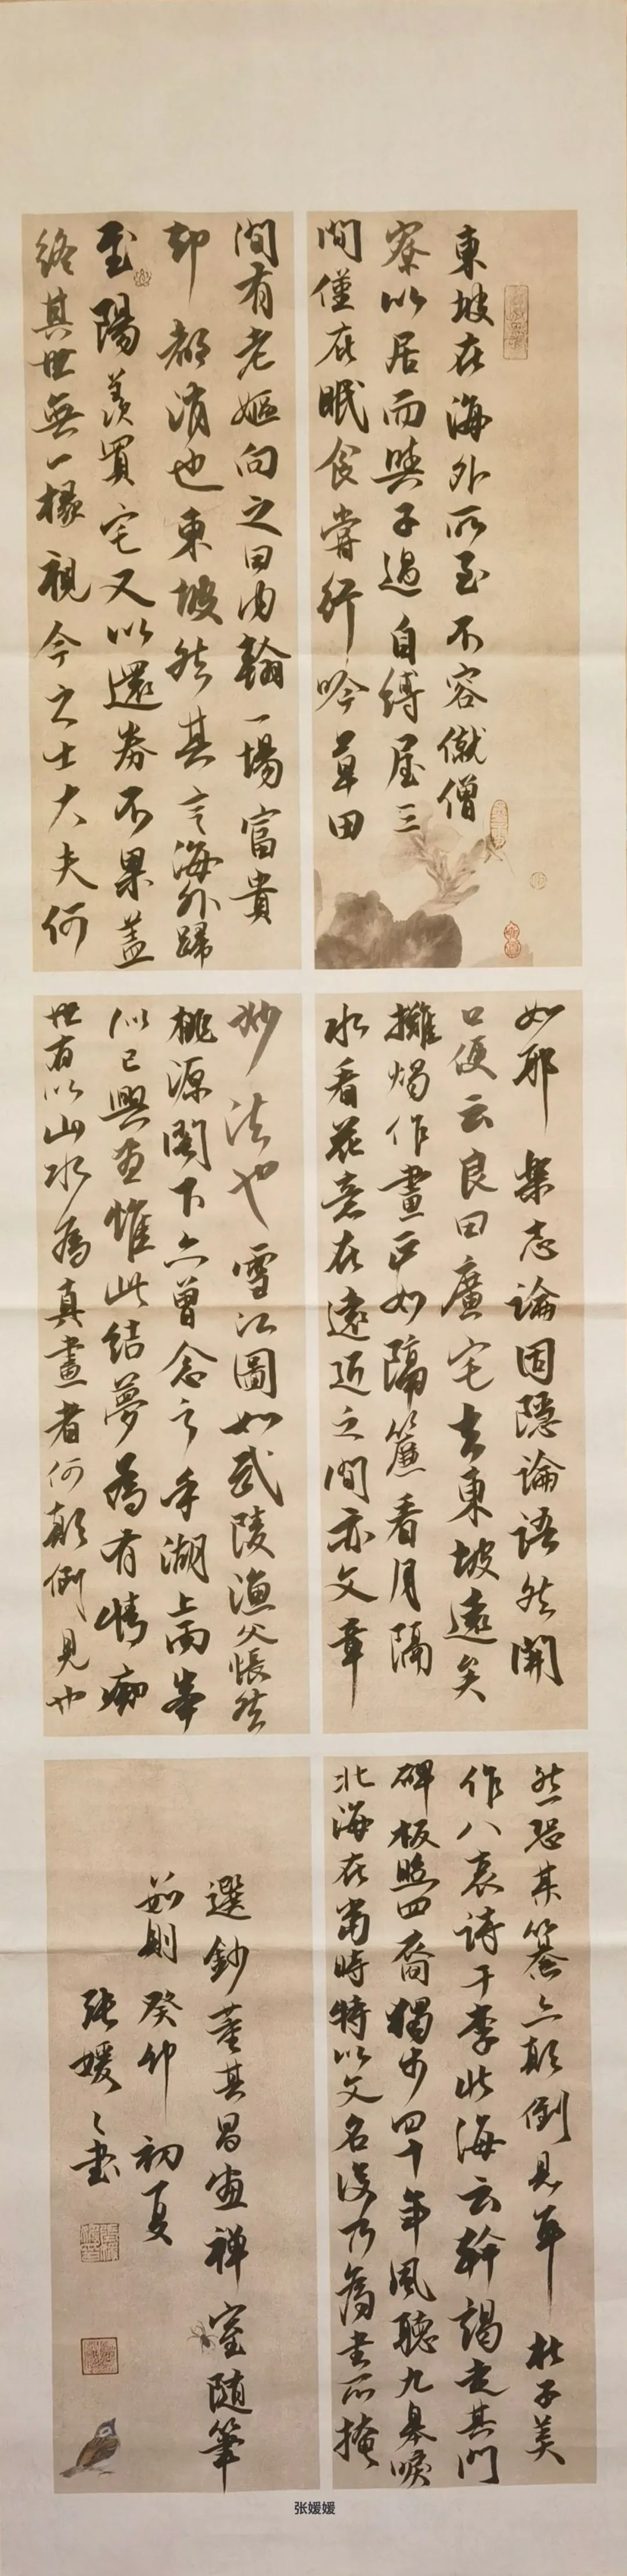 東坡在海外所至不容僦僧
寮以居而與子過自縛屋三
間僅庇眠食嘗行吟草田
間有老嫗向之曰内翰一場富貴
却都消也東坡然其言海外歸
至陽羨買宅又以還券不果蓋
終其世無一椽視今之士大夫何
如耶 樂志論固隱論語然開
口便云良田廣宅去東坡遠矣
攤燭作畫正如隔簾看月隔
水看花意在遠近之間亦文章
妙法也 雪江圖如武陵漁父悵然
桃源閣下亦曾念之乎湖上兩峯
似已興盡惟此結夢為有情痴
世有以山水為真畫者何顛倒見也
然恐某纂亦顛倒見耳 杜子美
作八哀詩于李北海云幹謁走其門
碑板照四裔獨步四十年風聽九皋唳
北海在當時特以文名後乃為書所掩
選鈔董其昌畫禅室随筆
茹則癸卯初夏
張媛々書
张媛媛